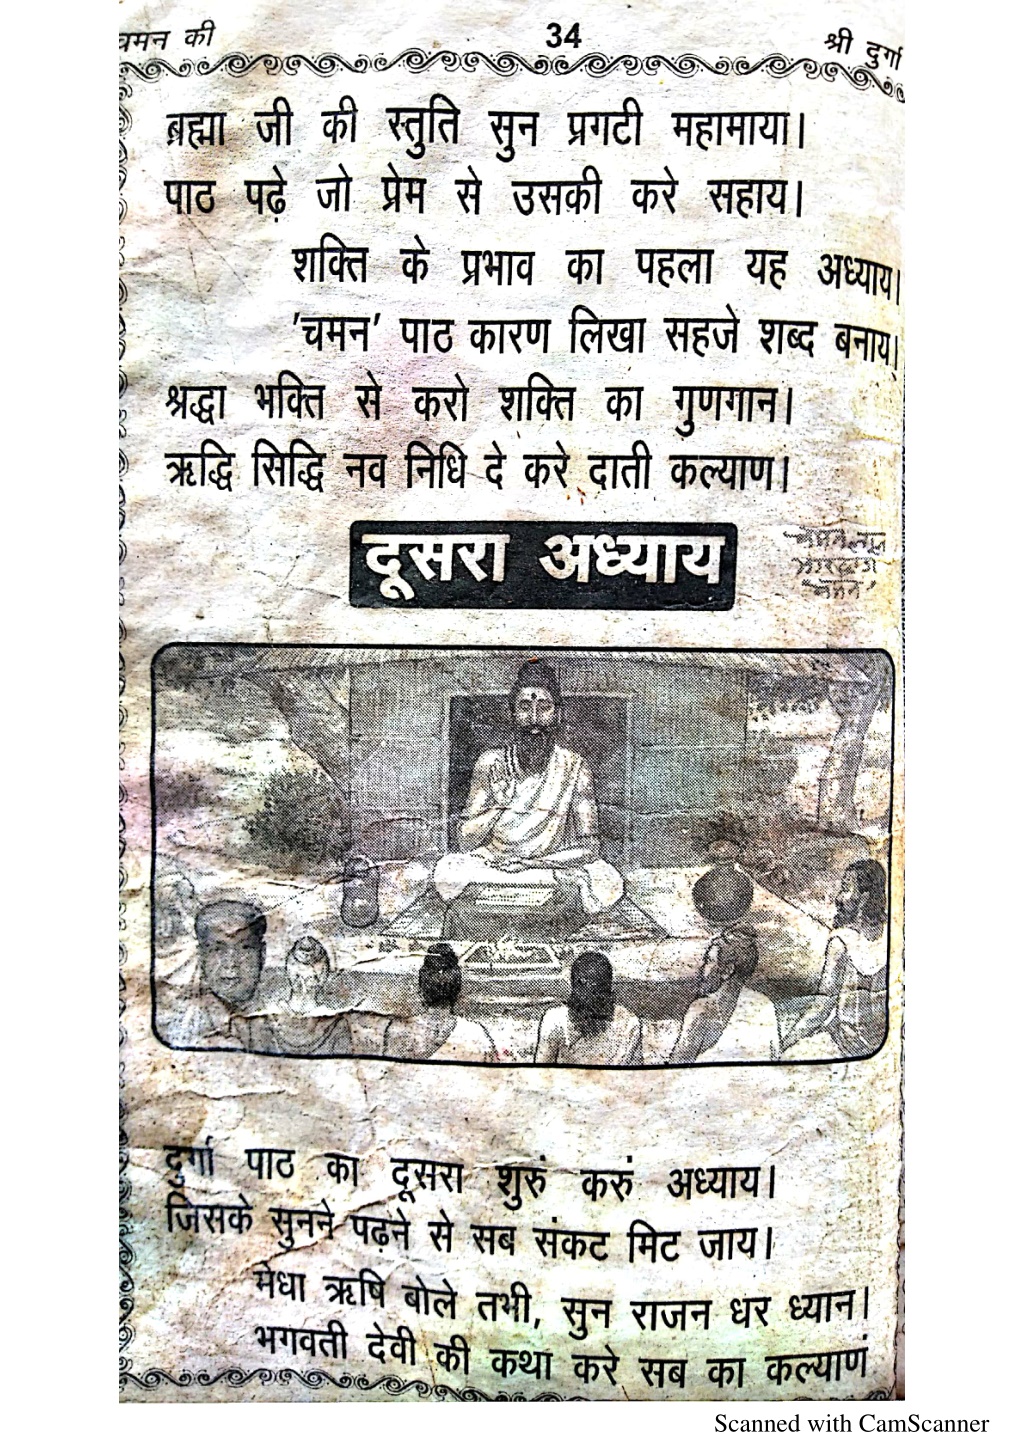 चमन की 34 श्री दुर्गा
ब्रह्मा जी की स्तुति सुन प्रगटी महामाया।
पाठ पढ़े जो प्रेम से उसकी करे सहाय।
शक्ति के प्रभाव का पहला यह अध्याय।
'चमन' पाठ कारण लिखा सहजे शब्द बनाय।
श्रद्धा भक्ति से करो शक्ति का गुणगान।
ऋद्धि सिद्धि नव निधि दे करे दाती कल्याण।
दूसरा अध्याय
दुर्गा पाठ का दूसरा शुरुं करुं अध्याय।
जिसके सुनने पढ़ने से सब संकट मिट जाय।
मेधा ऋषि बोले तभी, सुन राजन धर ध्यान।
भगवती देवी की कथा करे सब का कल्याण
Scanned with CamScanner